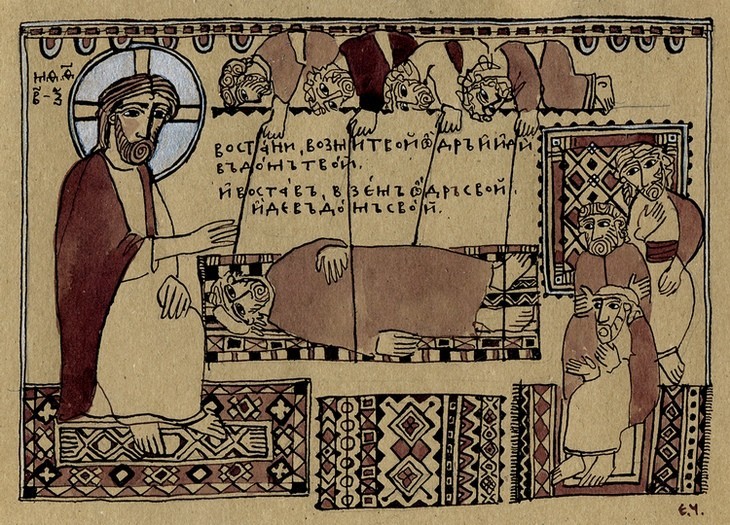 мѳ. ѳ҃
в҃ – з҃
воста́ни, возми твой ѻ҆дръ и҆ и҆ди
въ до́мъ твой.
и҆ воста́въ, взе́мъ ѻ҆дръ свой.
и҆де въ до́мъ свой.
Е.Ч.